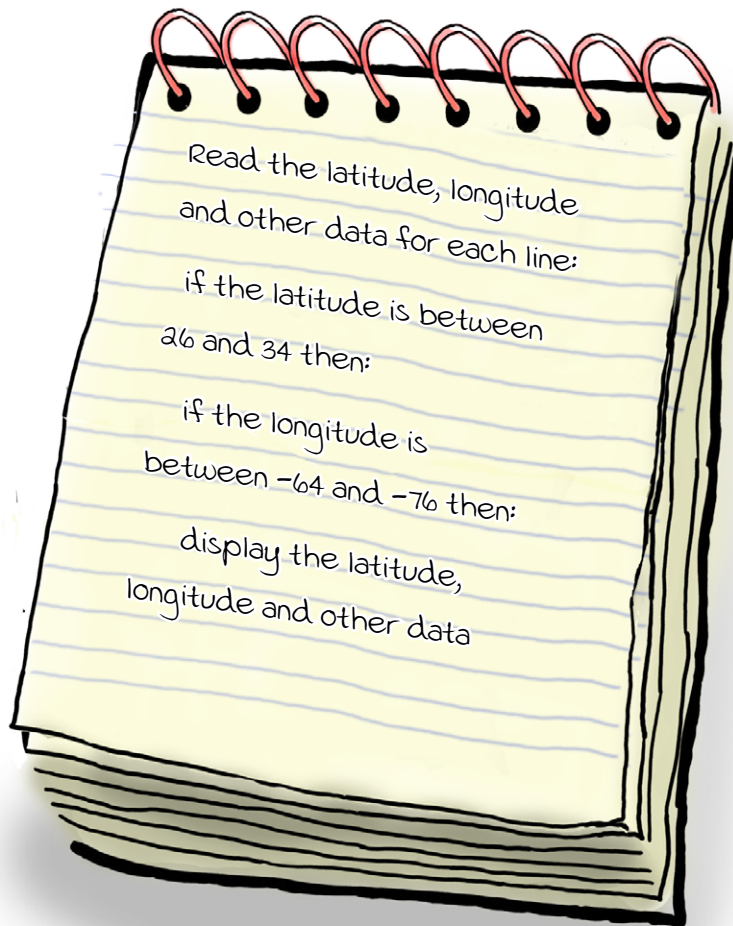 Read the latitude, longitude
and other data for each line:
if the latitude is between
26 and 34 then:
if the longitude is
between -64 and -76 then:
display the latitude,
longitude and other data